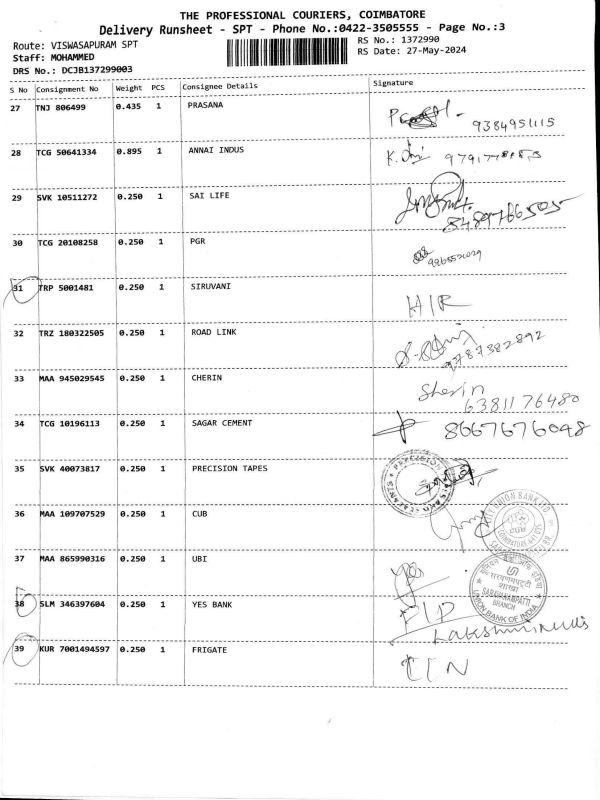 THE PROFESSIONAL COURIERS, COIMBATORE
Delivery Runsheet - SPT - Phone No.:0422-3505555 - Page No.:3
Route: VISWASAPURAM SPT
RS No.: 1372990
Staff: MOHAMMED
RS Date: 27-May-2024
DRS No.: DCJB137299003
S No Consignment No Weight PCS Consignee Details Signature
27 TNJ 806499 0.435 1 PRASANA
9384951115
28 TCG 50641334 0.895 1 ANNAI INDUS
29 SVK 10511272 0.250 1 SAI LIFE
8489766505
30 TCG 20108258 0.250 1 PGR
31 TRP 5001481 0.250 1 SIRUVANI
H/R
32 TRZ 180322505 0.250 1 ROAD LINK
9787382892
33 MAA 945029545 0.250 1 CHERIN
Sherin
6381176480
34 TCG 10196113 0.250 1 SAGAR CEMENT
8667676048
35 SVK 40073817 0.250 1 PRECISION TAPES
PRECISION
36 MAA 109707529 0.250 1 CUB
UNION BANK LTD
CUB
37 MAA 865990316 0.250 1 UBI
शाखा
SARAVANAMPATTI
BRANCH
UNION BANK OF INDIA
38 SLM 346397604 0.250 1 YES BANK
39 KUR 7001494597 0.250 1 FRIGATE